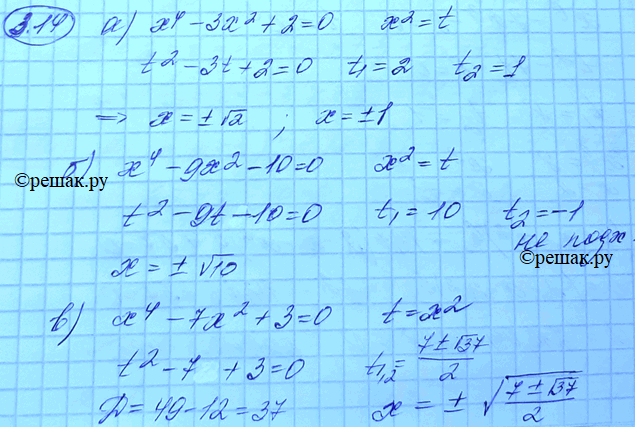 3.14 а) x⁴ - 3x² + 2 = 0 x² = t
t² - 3t + 2 = 0 t₁ = 2 t₂ = 1
=> x = ±√2 ; x = ±1
б) x⁴ - 9x² - 10 = 0 x² = t
©решак.ру
t² - 9t - 10 = 0 t₁ = 10 t₂ = -1
не подх.
©решак.ру
x = ±√10
в) x⁴ - 7x² + 3 = 0 t = x²
t² - 7 + 3 = 0 t₁,₂ = (7 ± √37)/2
D = 49 - 12 = 37 x = ± √((7 ± √37)/2)